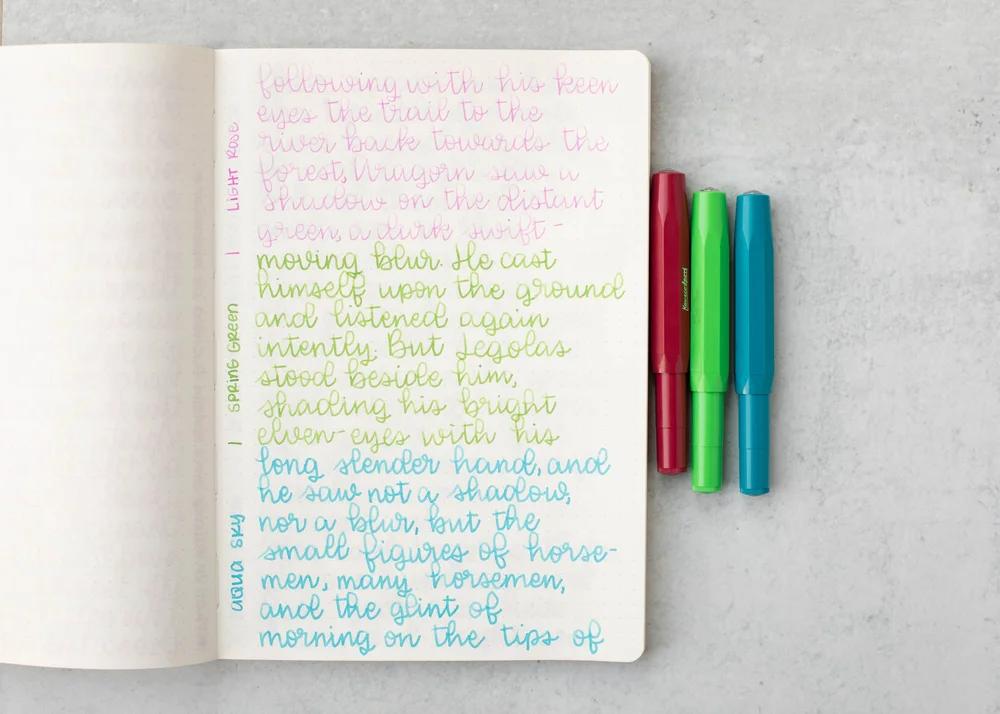 following with his keen
eyes the trail to the
river back towards the
forest, Aragorn saw a
shadow on the distant
green, a dark swift-
moving blur. He cast
himself upon the ground
and listened again
intently. But Legolas
stood beside him,
shading his bright
elven-eyes with his
long slender hand, and
he saw not a shadow,
nor a blur, but the
small figures of horse-
men, many horsemen,
and the glint of
morning on the tips of
LIGHT ROSE
| SPRING GREEN
| AQUA SKY
Kaweco Sport